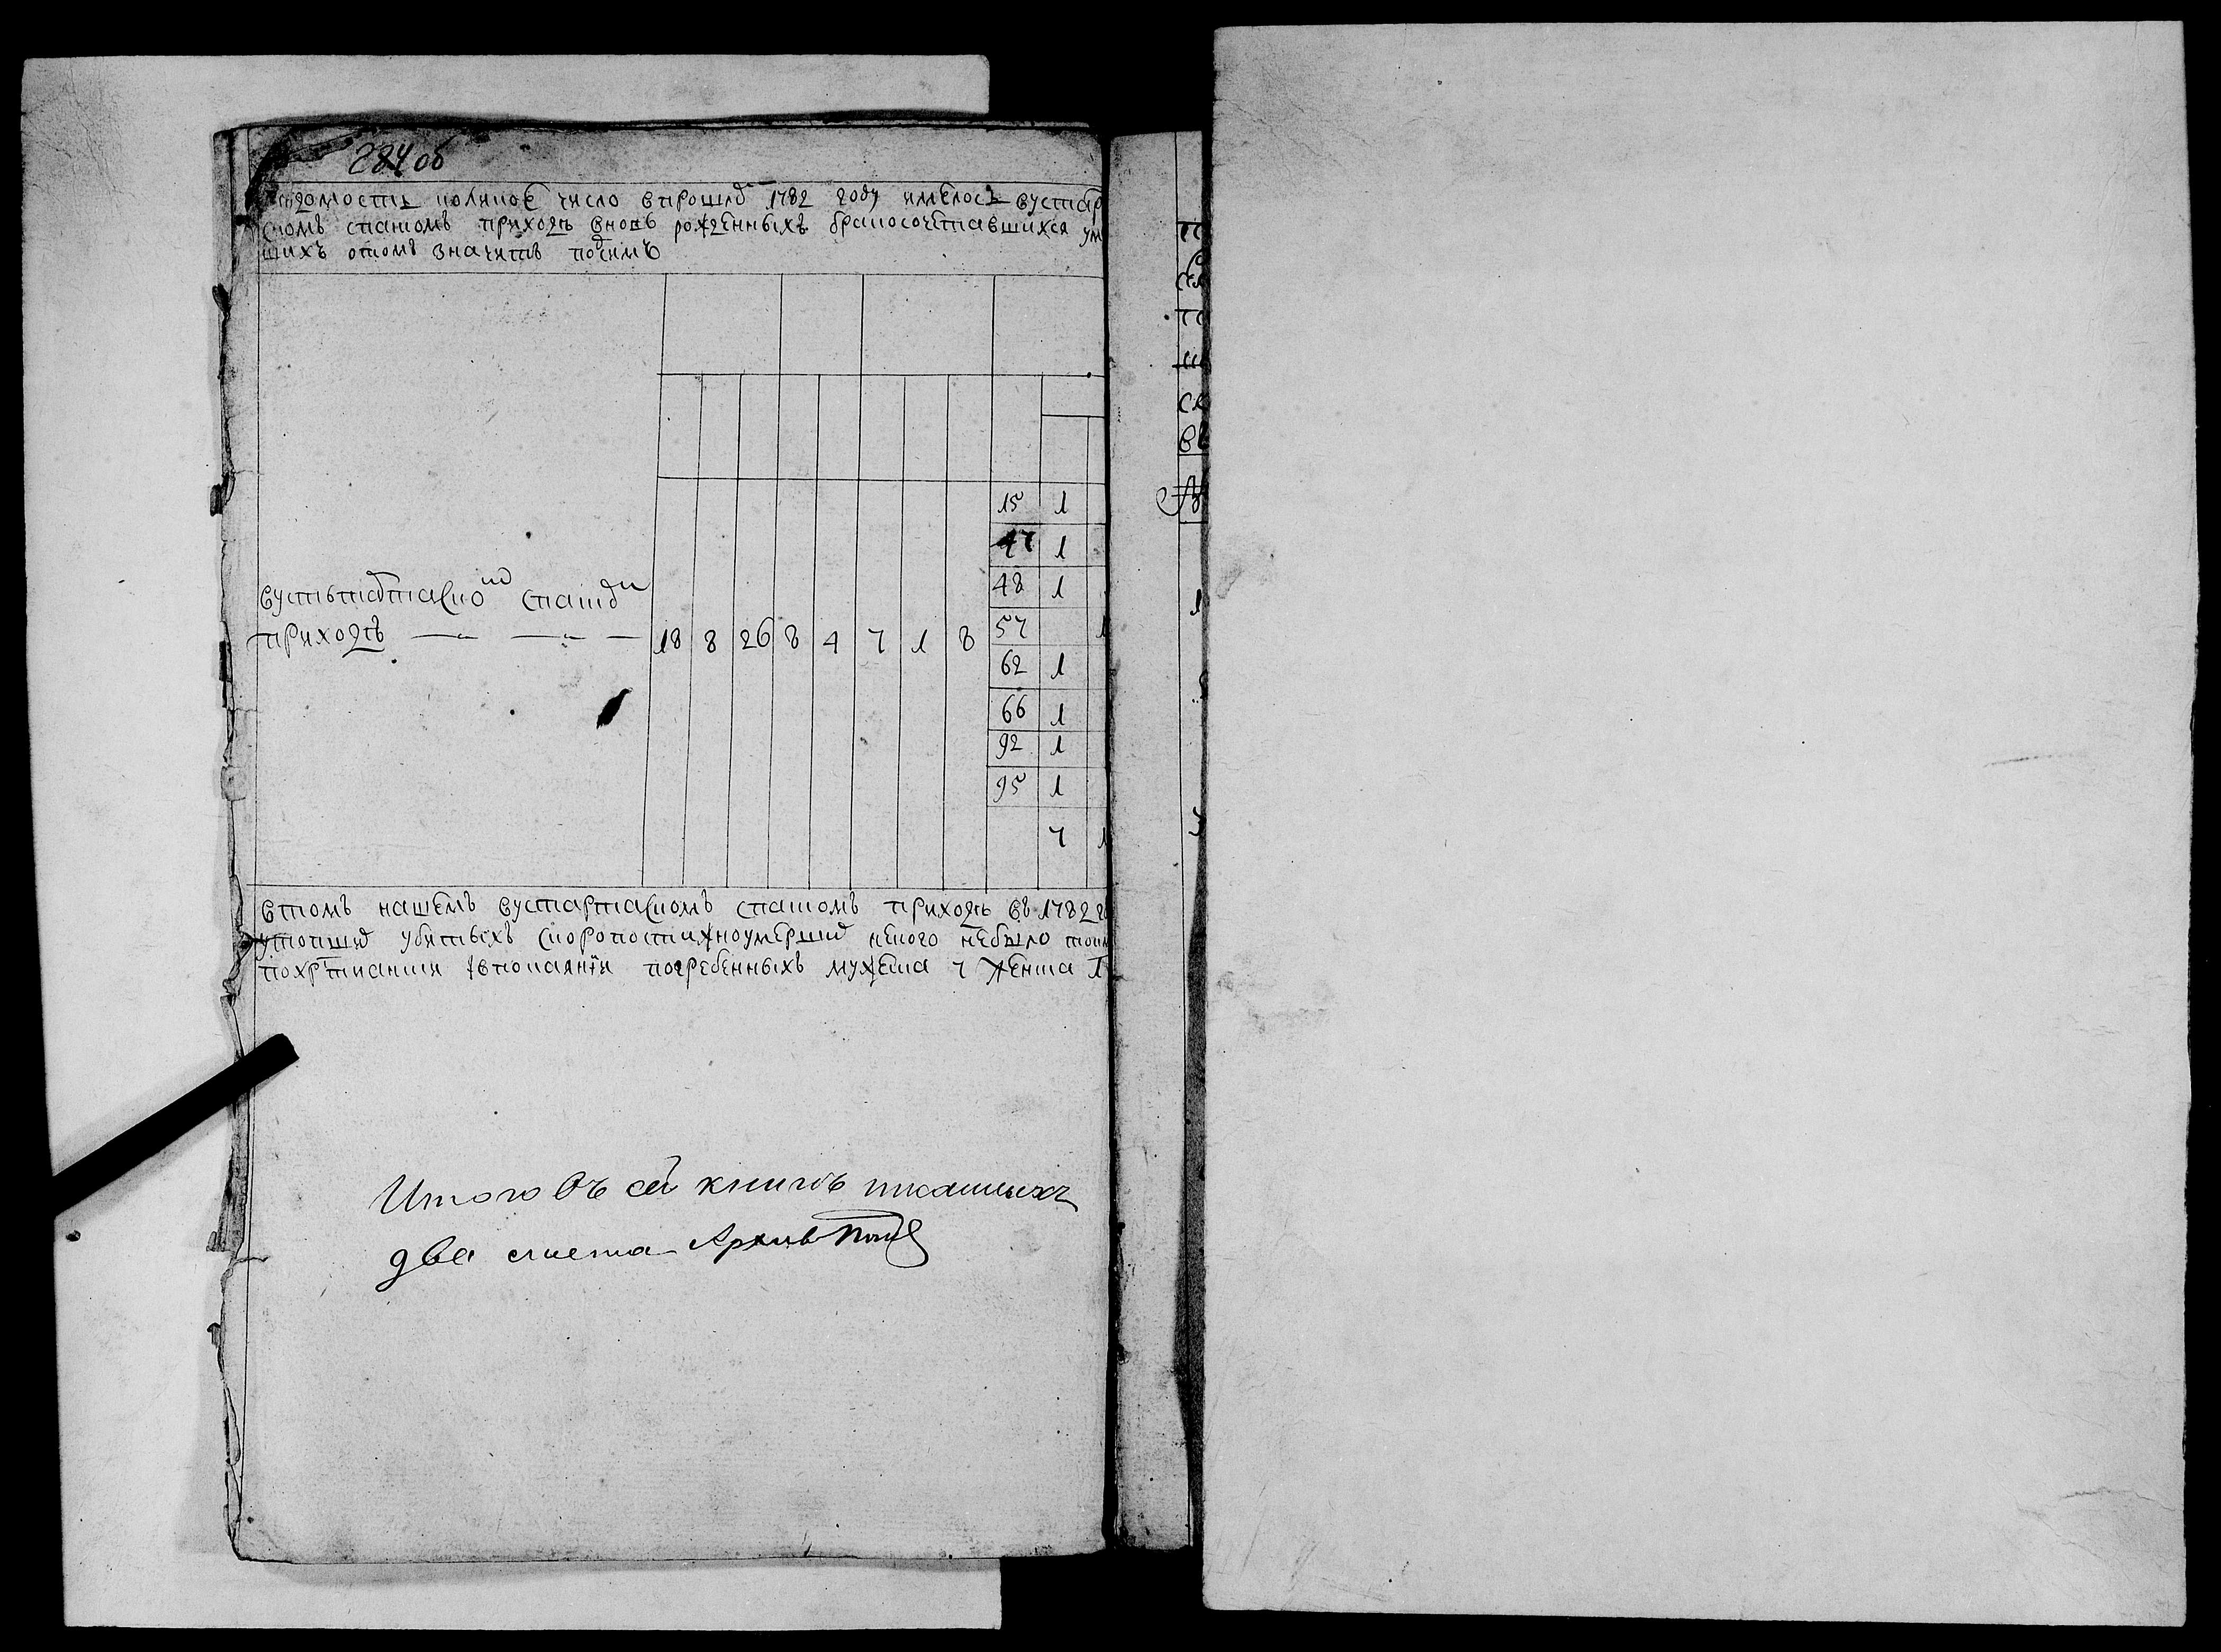 284 об
ведомость коликое число впрошлом 1782 году имелось вустар
ском спаском приходе вновь рожденныхъ бракосочетавшихся ум
шихъ отомъ значитъ подсимъ
15 1
47 1
48 1
вустьтартаской спаской
приходе 18 8 26 8 4 7 1 8 57 1
62 1
66 1
92 1
95 1
7 1
втомъ нашемъ вустартаскомъ спаскомъ приходе въ 1782 го
утопших убитыхъ скоропостижноумерших некого небыло токм
похрстиански впокаянїи погребенныхъ мужеска 7 женска 1
Итого въ сей книгѣ писанныхъ
два листа Архив